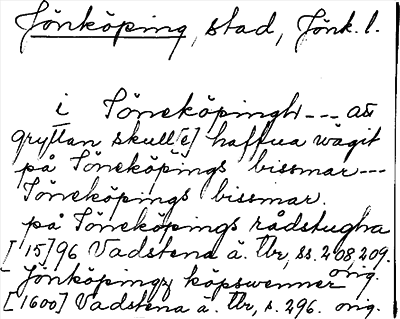 Jönköping, stad, Jönk. l.
i Söneköpingh --- att
gryttan skull[e] haffua wägit
på Söneköpings bissmar ---
Söneköpings bissmar.
på Söneköpings rådstugha
[15]96 Vadstena ä. Tbr, ss. 208, 209.
orig.
Jönköpingz köpswenner
[1600] Vadstena ä. Tbr, s. 296. orig.